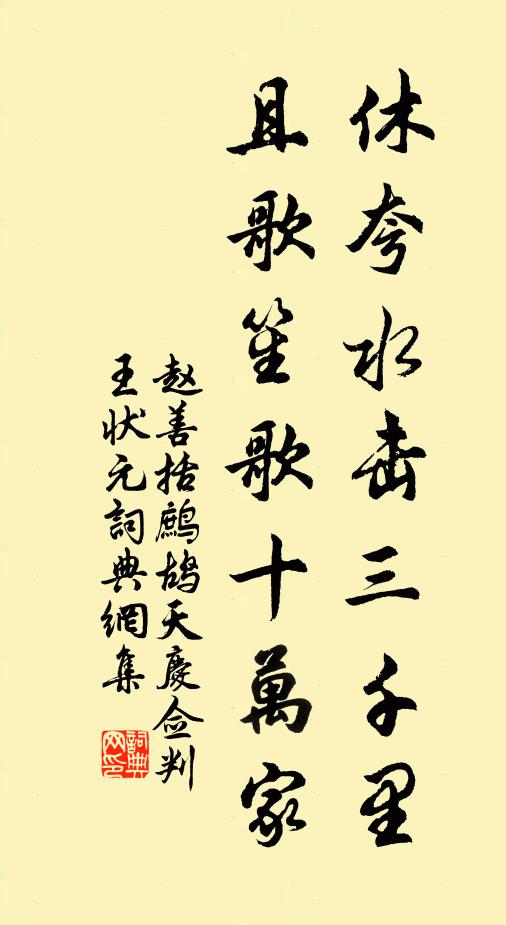 休夸水击三千里
且歌笙歌十萬家
赵善括鹧鸪天慶佥判
王状元詞典網集
詞典網印